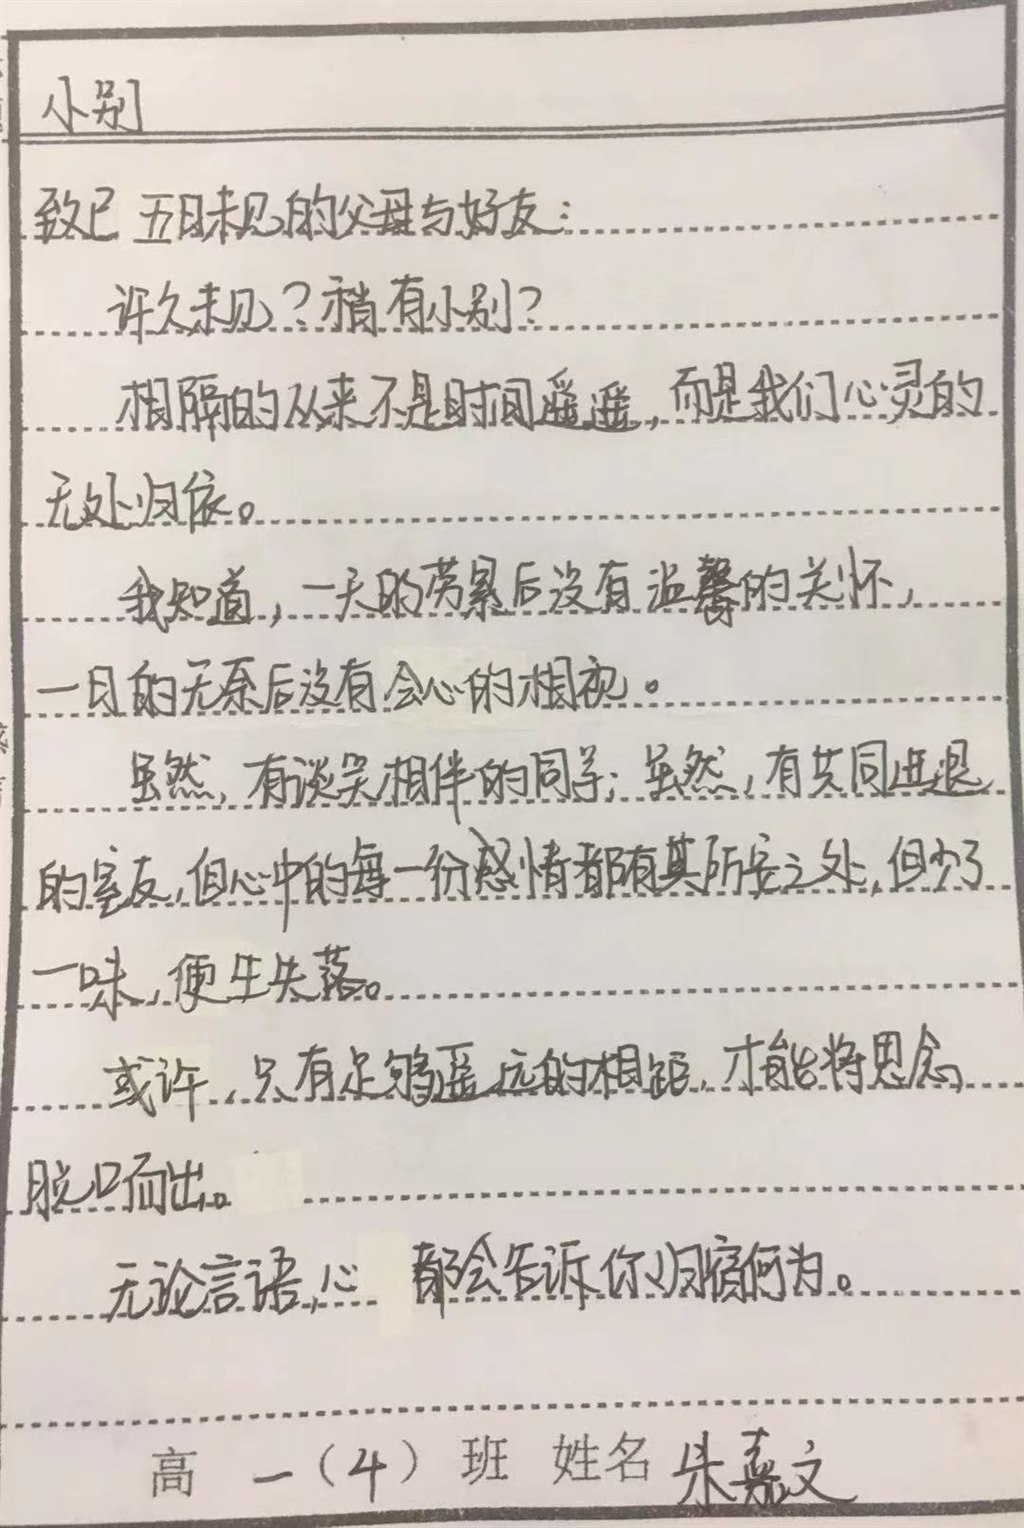 小别
致已五日未见的父母与好友：
许久未见？稍有小别？
相隔的从来不是时间遥遥，而是我们心灵的
无处归依。
我知道，一天的劳累后没有温馨的关怀，
一日的无奈后没有会心的相视。
虽然，有谈笑相伴的同学；虽然，有共同进退
的室友，但心中的每一份感情都有其所安之处，但少了
一味，便生失落。
或许，只有足够遥远的相距，才能将思念
脱口而出。
无论言语，心都会告诉你归宿何为。
高一（4）班 姓名 朱嘉文